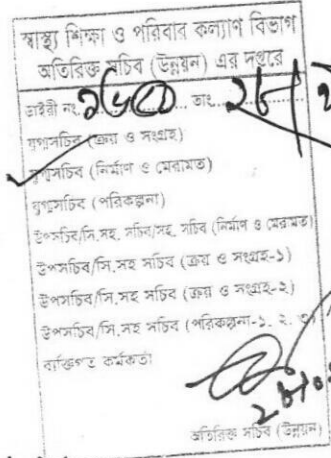 স্বাস্থ্য শিক্ষা ও পরিবার কল্যাণ বিভাগ
অতিরিক্ত সচিব (উন্নয়ন) এর দপ্তরে
ডাইরী নং তাং ২৮/
যুগ্মসচিব (ক্রয় ও সংগ্রহ)
যুগ্মসচিব (নির্মাণ ও মেরামত)
যুগ্মসচিব (পরিকল্পনা)
উপসচিব/সি.সহ. সচিব/সহ. সচিব (নির্মাণ ও মেরামত)
উপসচিব/সি.সহ সচিব (ক্রয় ও সংগ্রহ-১)
উপসচিব/সি.সহ সচিব (ক্রয় ও সংগ্রহ-২)
উপসচিব/সি.সহ সচিব (পরিকল্পনা-১. ২. ৩)
ব্যক্তিগত কর্মকর্তা
অতিরিক্ত সচিব (উন্নয়ন)